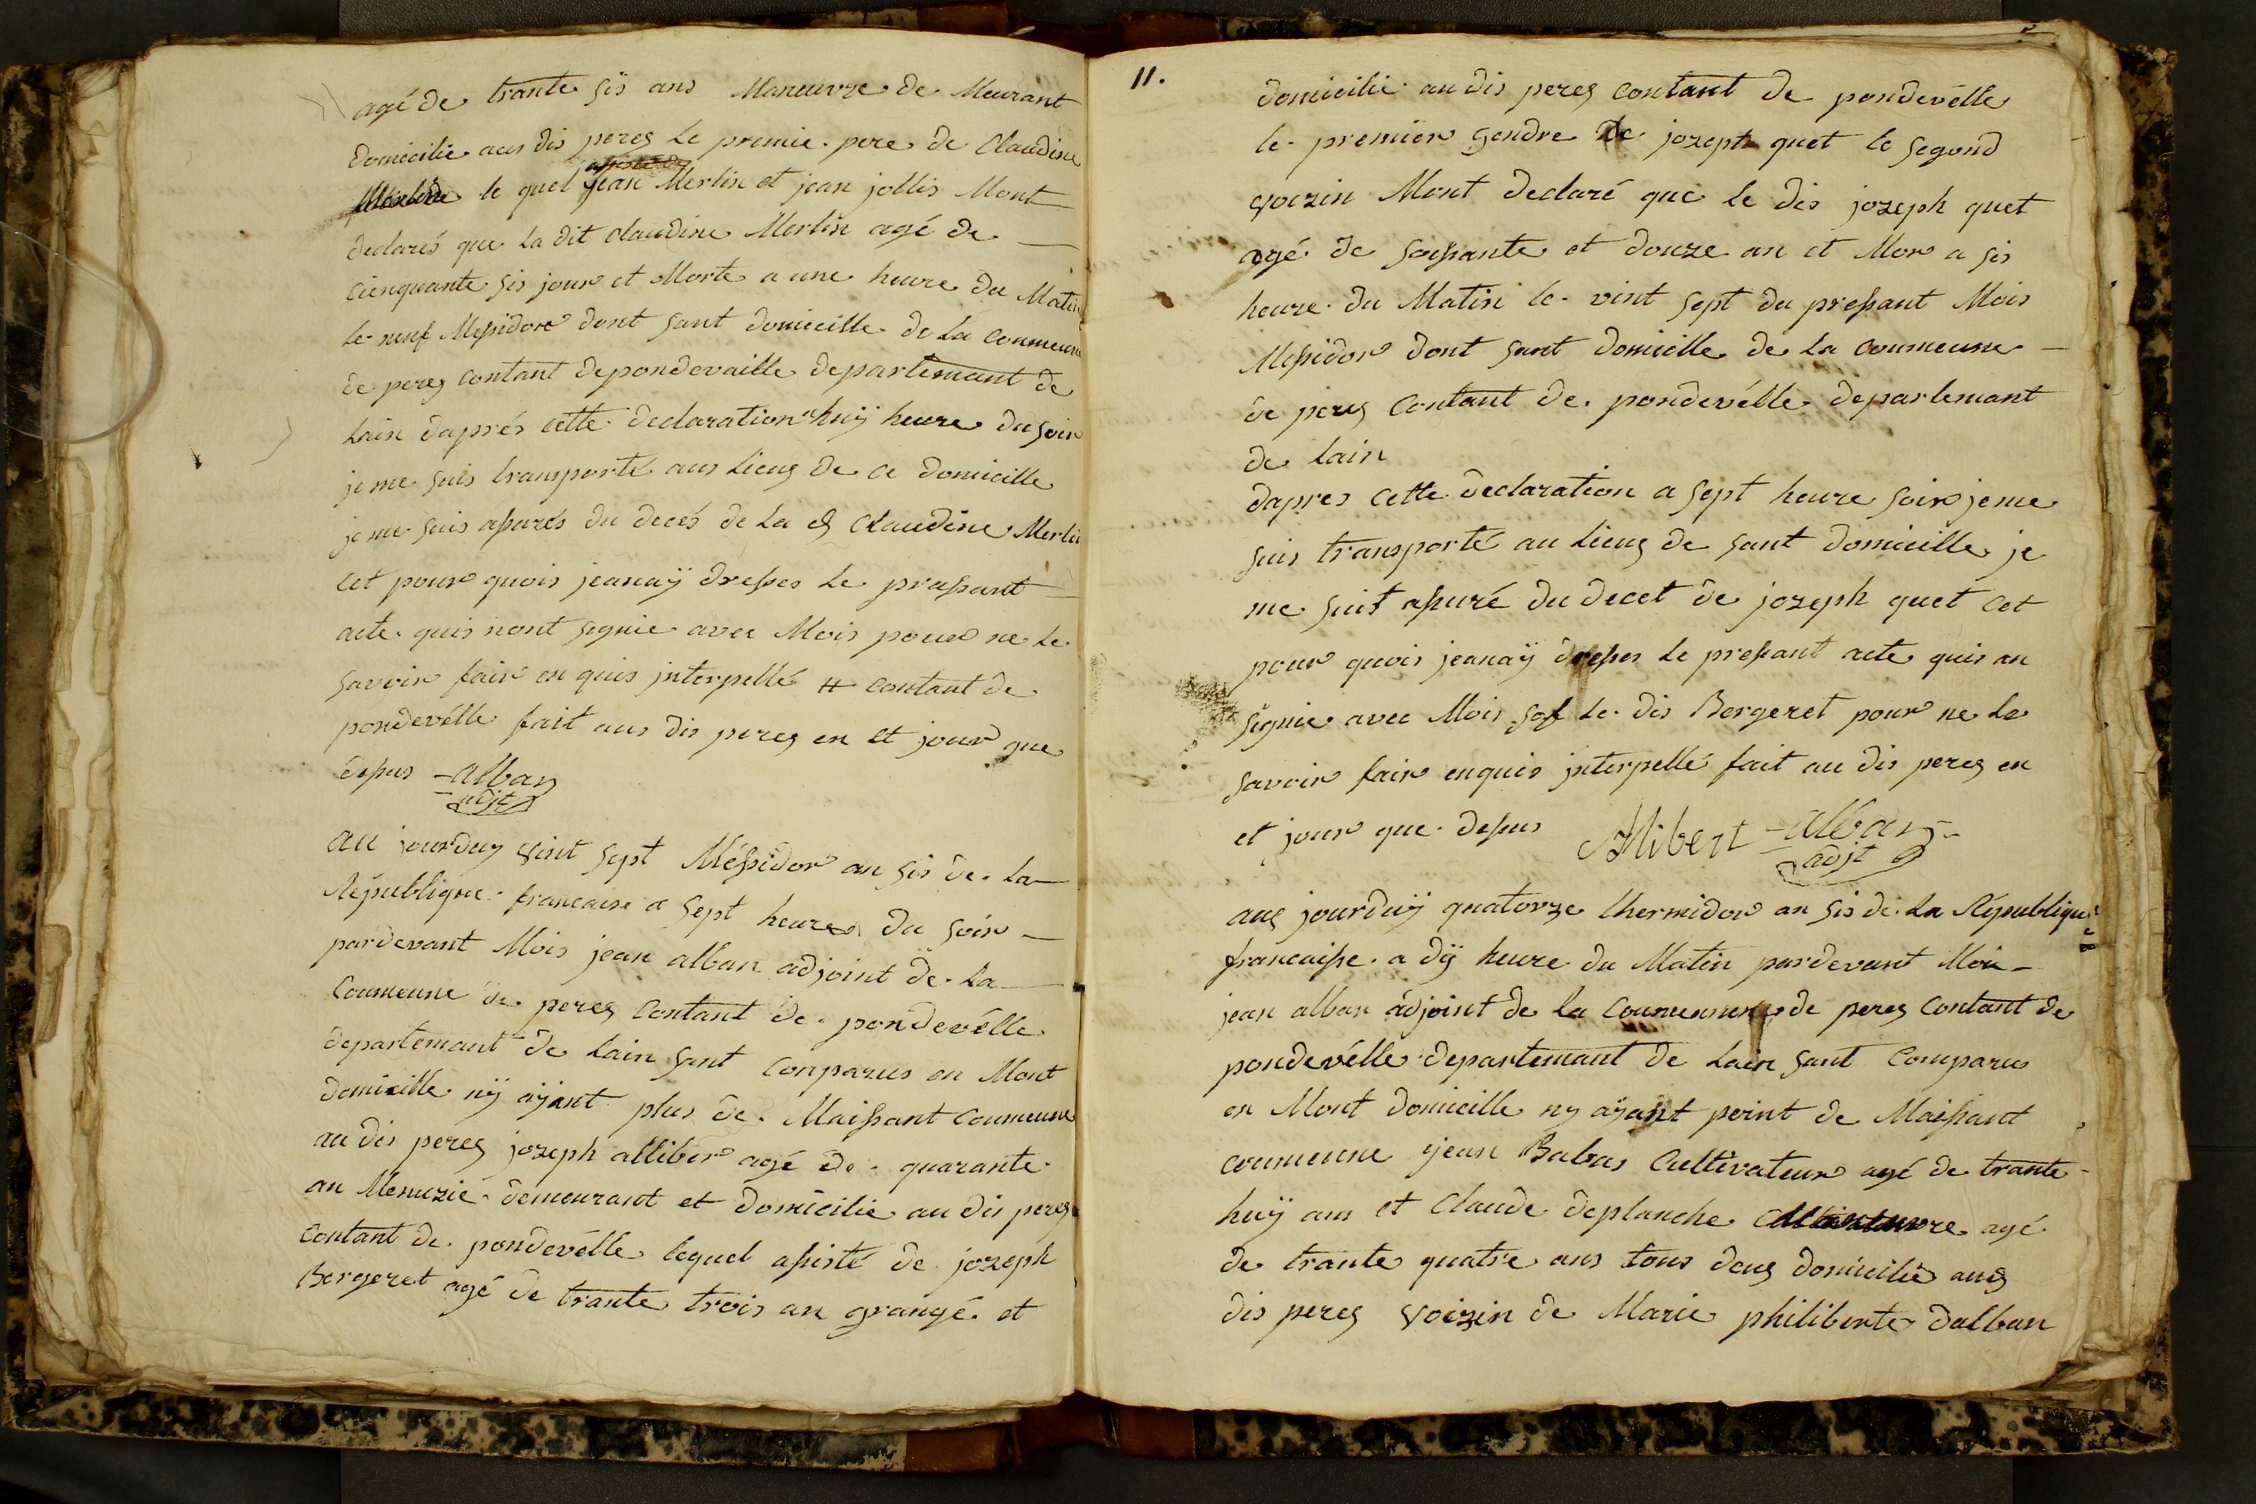 agé de trante sis ans Maneuvre de Meurant
domicilie aus dis peres Le premie pere de Claudine
le quel jean Merlin et jean jollis Mont
declarés que La dit claudine Merlin agé de
cienquante sis jour et Morte a une heure du Matin
le neuf Messidore dont sant domicille de La coumeune
de peres contant depondevaille departemant de
Lain daprés cette declaration a huÿ heure du soir
je me suis transporté aus Lieus de ce domicille
je me suis assurés du decés de La d Claudine Merlin
cet pour quois jeanaÿ dresses Le prassant
acte quis nont signie avec Mois pour ne Le
savoir fair en quis jnterpellé # contant de
pondevélle fait aus dis peres en et jour que
desus alban
adjt
au jourduy vint sept Méssidor an sis de La
Républigue francaise a sept heures du soir
pardevant Mois jean alban adjoint de La
Coumeune de peres Contant de pondevélle
departemant de Lain sant Conparus en Mont
domicille nÿ aÿant plus de Maissant Coumeune
au dis peres jozeph alliber agé de quarante
an Menuzié demeurant et domicilie au dis peres
Contant de pondevélle lequel assisté de jozeph
Bergeret agé de trante trois an grangé et
11.
domicilie au dis peres Contant de pondevélle
le premier gendre de jozeph quet le segond
voizin Mont declaré que Le dis jozeph quet
agé de soissante et douze an et Mor a sis
heure du Matin le vint sept du pressant Mois
Messidor dont sant domicille de La Coumeune
de peres Contant de pondevélle departemant
de Lain
dapres cette declaration a sept heure soir je me
suis transporté au Lieus de sant domicille je
me suit assuré du decet de jozeph quet Cet
pour quois jeanaÿ dresses Le pressant acte quis an
signie avec Mois sof Le dis Bergeret pour ne Le
savoir fair enquis jnterpellé fait au dis peres en
et jour que desus Allibert alban
adjt
aus jourduÿ quatorze thermidor an sis de La Républigue
francaisse a dÿ heure du Matin pardevant Moi
jean alban adjoint de La Coumeune de peres Contant de
pondevélle departemant de Lain sant Comparus
en Mont domicille ny aÿant point de Maissant
coumeune jean Babas Cultivateur agé de trante
huÿ ans et Claude deplanche agé
de trante quatre ans tous deus domicilié aus
dis peres voizin de Marie philiberte dalban